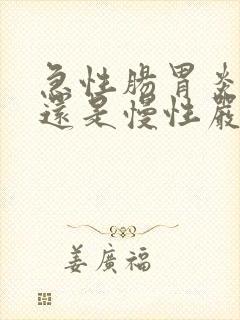 急性腸胃炎
還是慢性嚴
姜廣福